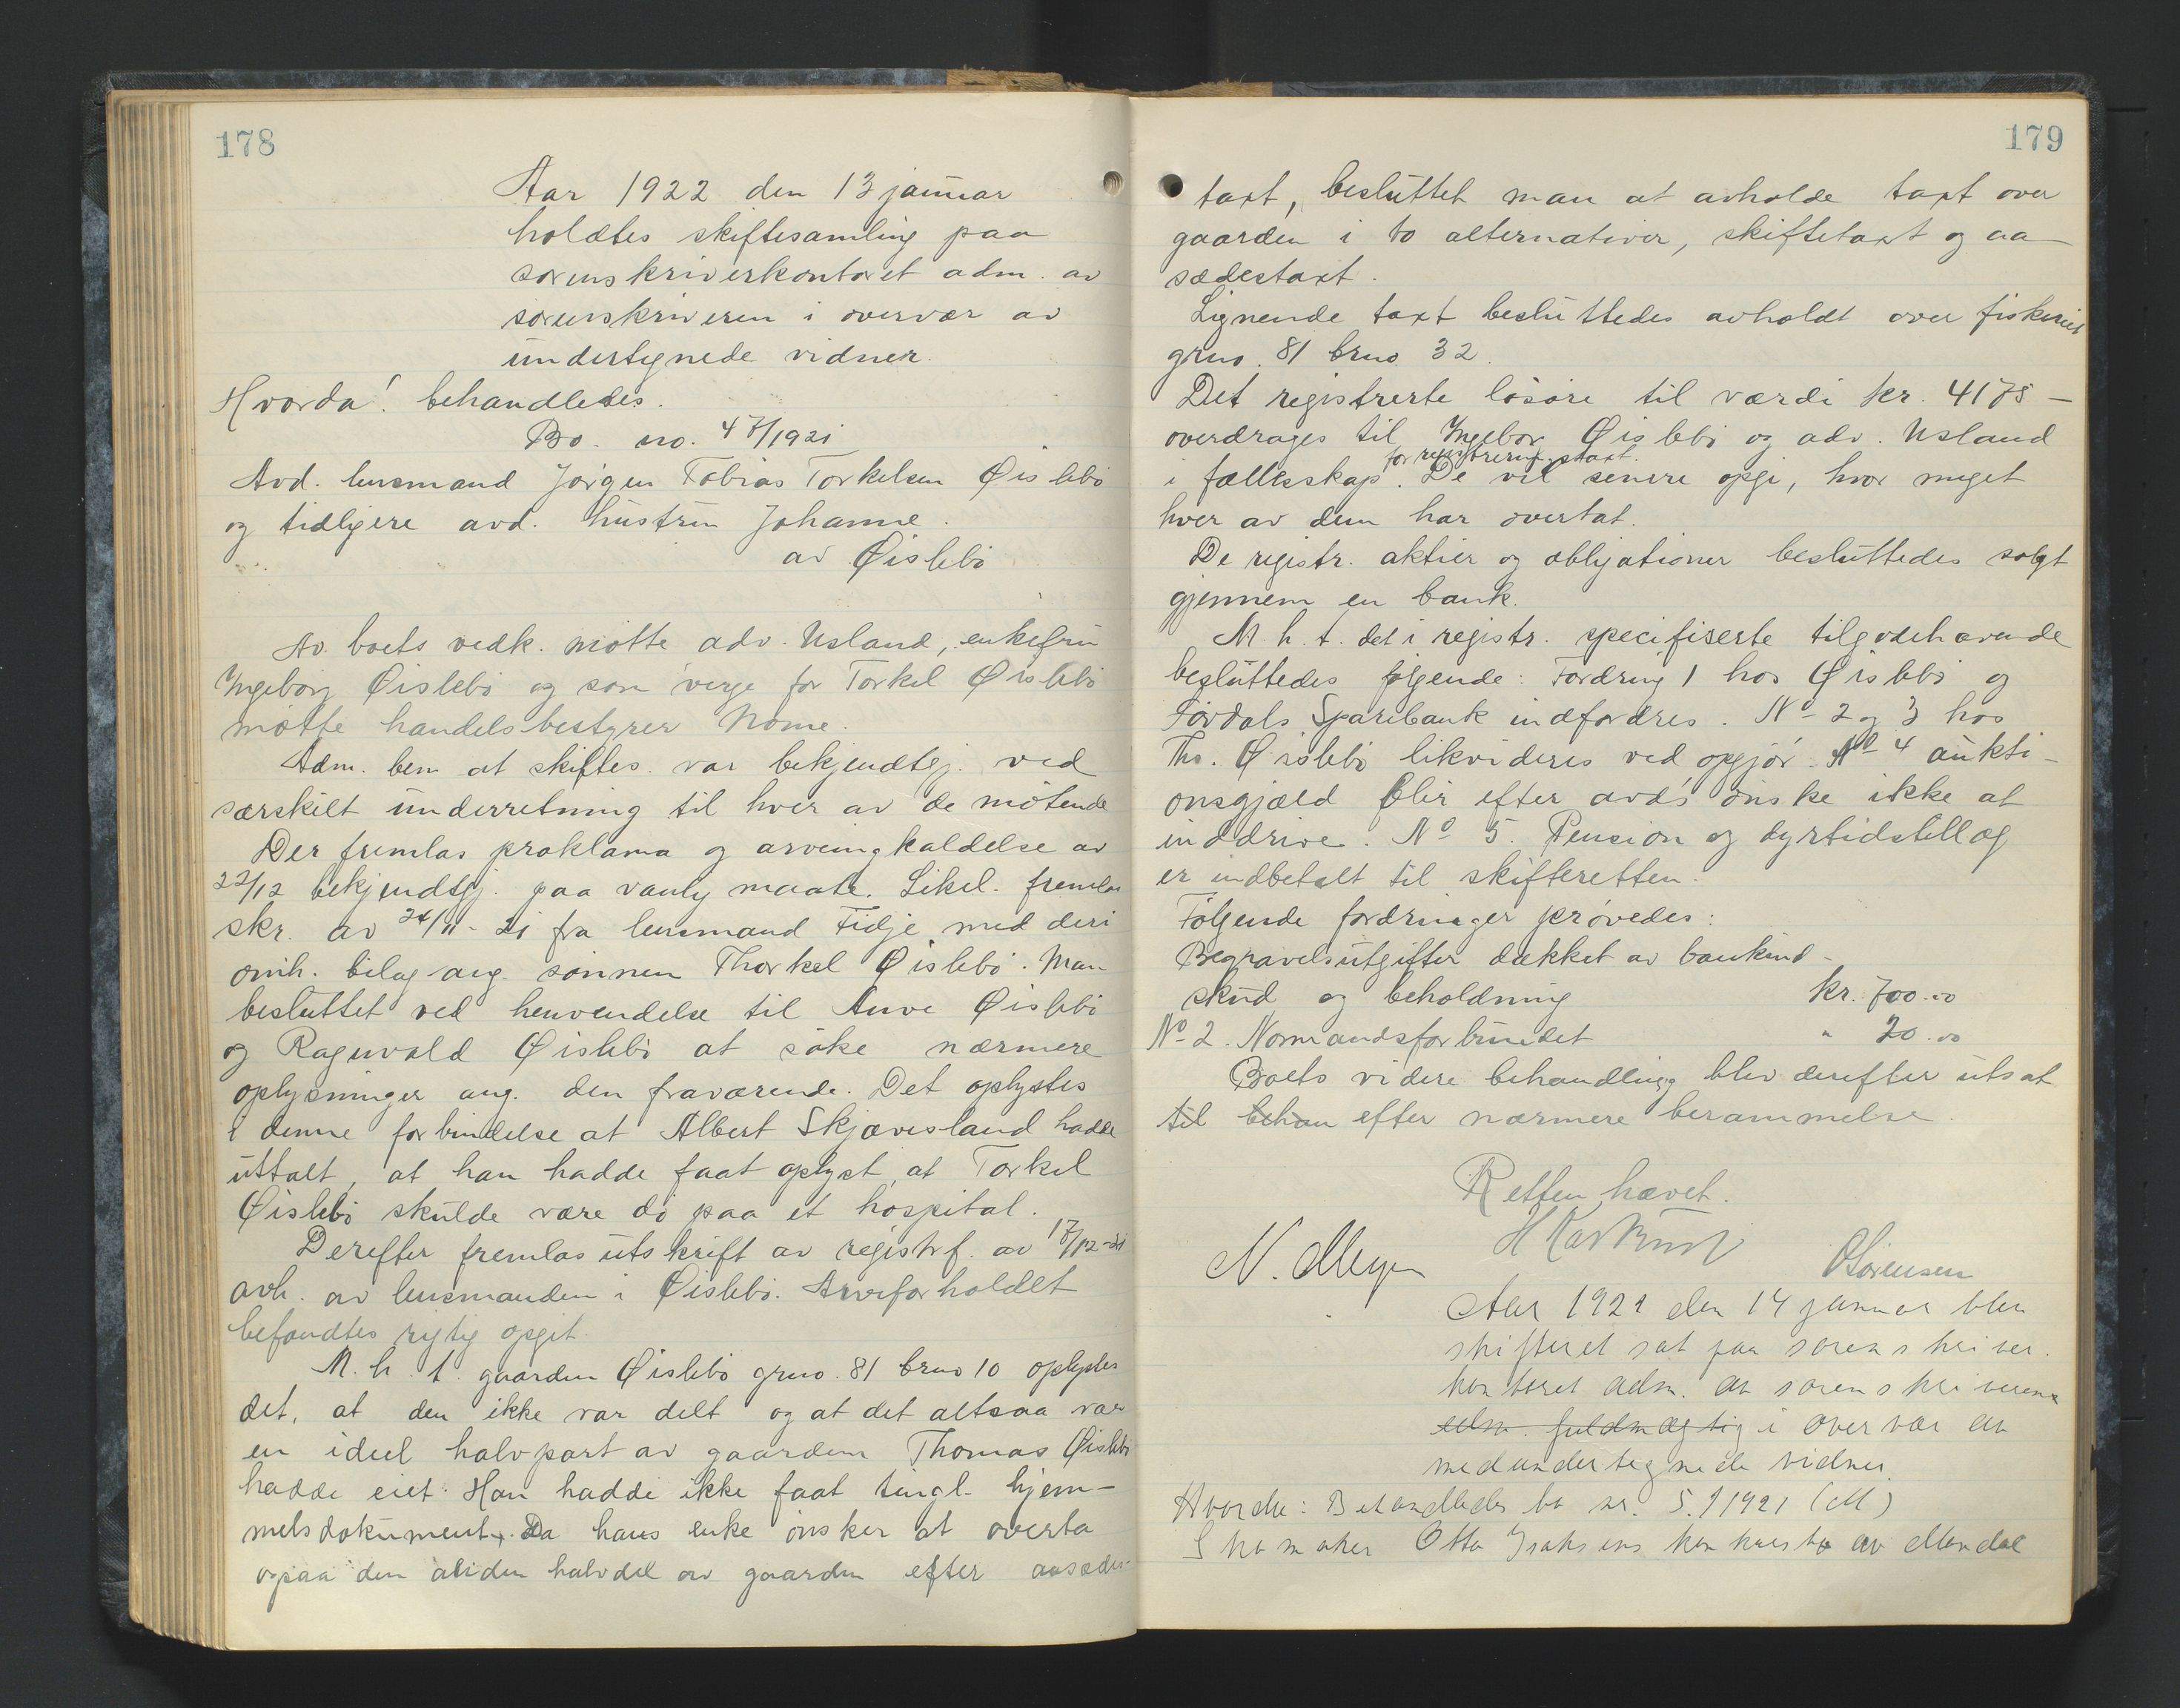 178
Aar 1922 den 13 januar
holdtes skiftesamling paa
sorenskriverkontoret adm. av
sorenskriveren i overvær av
undertegnede vidner.
Hvorda! behandledes.
Bo. no. 47/1921
Avd. lensmand Jörgen Tobias Torkelsen Øislebö
og tidligere avd. hustru Johanne.
av Øislebö
Av boets vedk. mötte adv. Usland, enkefru
Ingeborg Øislebö og som verge for Torkel Øislebö
mötte handelsbestyrer Nome.
Adm. bem at skiftes. var bekjendtgj. ved
særskilt underretning til hver av de mötende
Der fremlas proklama og arveingkaldelse av
22/12 bekjendtgj. paa vanlig maate. Likel. fremlas
skr. av 24/11-21 fra lensmand Tidje med deri
omh. bilag ang. sönnen Thorkel Øislebö. Man
besluttet ved henvendelse til Øislebö
og Ragnvald Øislebö at söke nærmere
oplysninger ang. den fraværende. Det oplystes
i denne forbindelse at Albert Skjævesland hadde
uttalt, at han hadde faat oplyst, at Torkel
Øislebö skulde være dö paa et hospital.
Derefter fremlas utskrift av registrf. av 17/12-21
avh. av lensmanden i Øislebö. Arveforholdet
befandtes rigtig opgit.
M. h. t. gaarden Øislebö grno. 81 brno 10 oplystes
det, at den ikke var delt og at det altsaa var
en ideel halvpart av gaarden Thomas Øislebö
hadde eiet. Han hadde ikke faat tingl. hjem-
melsdokument. Da hans enke önsker at overta
ogsaa den anden halvdel av gaarden efter aasædes-
179
taxt, besluttet man at avholde taxt over
gaarden i to alternativer, skiftetaxt og aa-
sædestaxt.
Lignende taxt besluttedes avholdt over fiskeriet
grno. 81 brno. 32.
Det registrerte lösöre til værdi kr. 4175 -
overdrages til Ingebor Øislebö og adv. Usland
for registreringstaxt.
i fællesskap. De vil senere opgi, hvor meget
hver av dem har overtat.
De registr. aktier og obligationer besluttedes solgt
gjennem en bank.
M. h. t. det i registr. specifiserte tilgodehavende
besluttedes fölgende: Fordring 1 hos Øislebö og
Sparebank indfordres. No 2 og 3 hos
Th. Øislebö likvideres ved opgjör. No 4 aukti-
onsgjæld blir efter avds önske ikke at
inddrive. No 5. Pension og dyrtidstillæg
er indbetalt til skifteretten.
Fölgende fordringer prövedes:
Begravelsutgifter dækket av bankind-
skud og beholdning kr. 700.00
No 2. Normandsforbundet " 20.00
Boets videre behandling blev derefter utsat
til behan efter nærmere berammelse.
Retten hævet.
N. Meyer
O Sörensen
Aar 1921 den 14 januar blev
skifteret sat paa sorenskriver-
kontoret adm. av sorenskriveren
edm. fuldmægtig i overvær av
medundertegnede vidner.
Hvorda: Behandledes bo nr. 5./1921 (M)
Skomaker Otto Isaksens konkursbo av Mandal